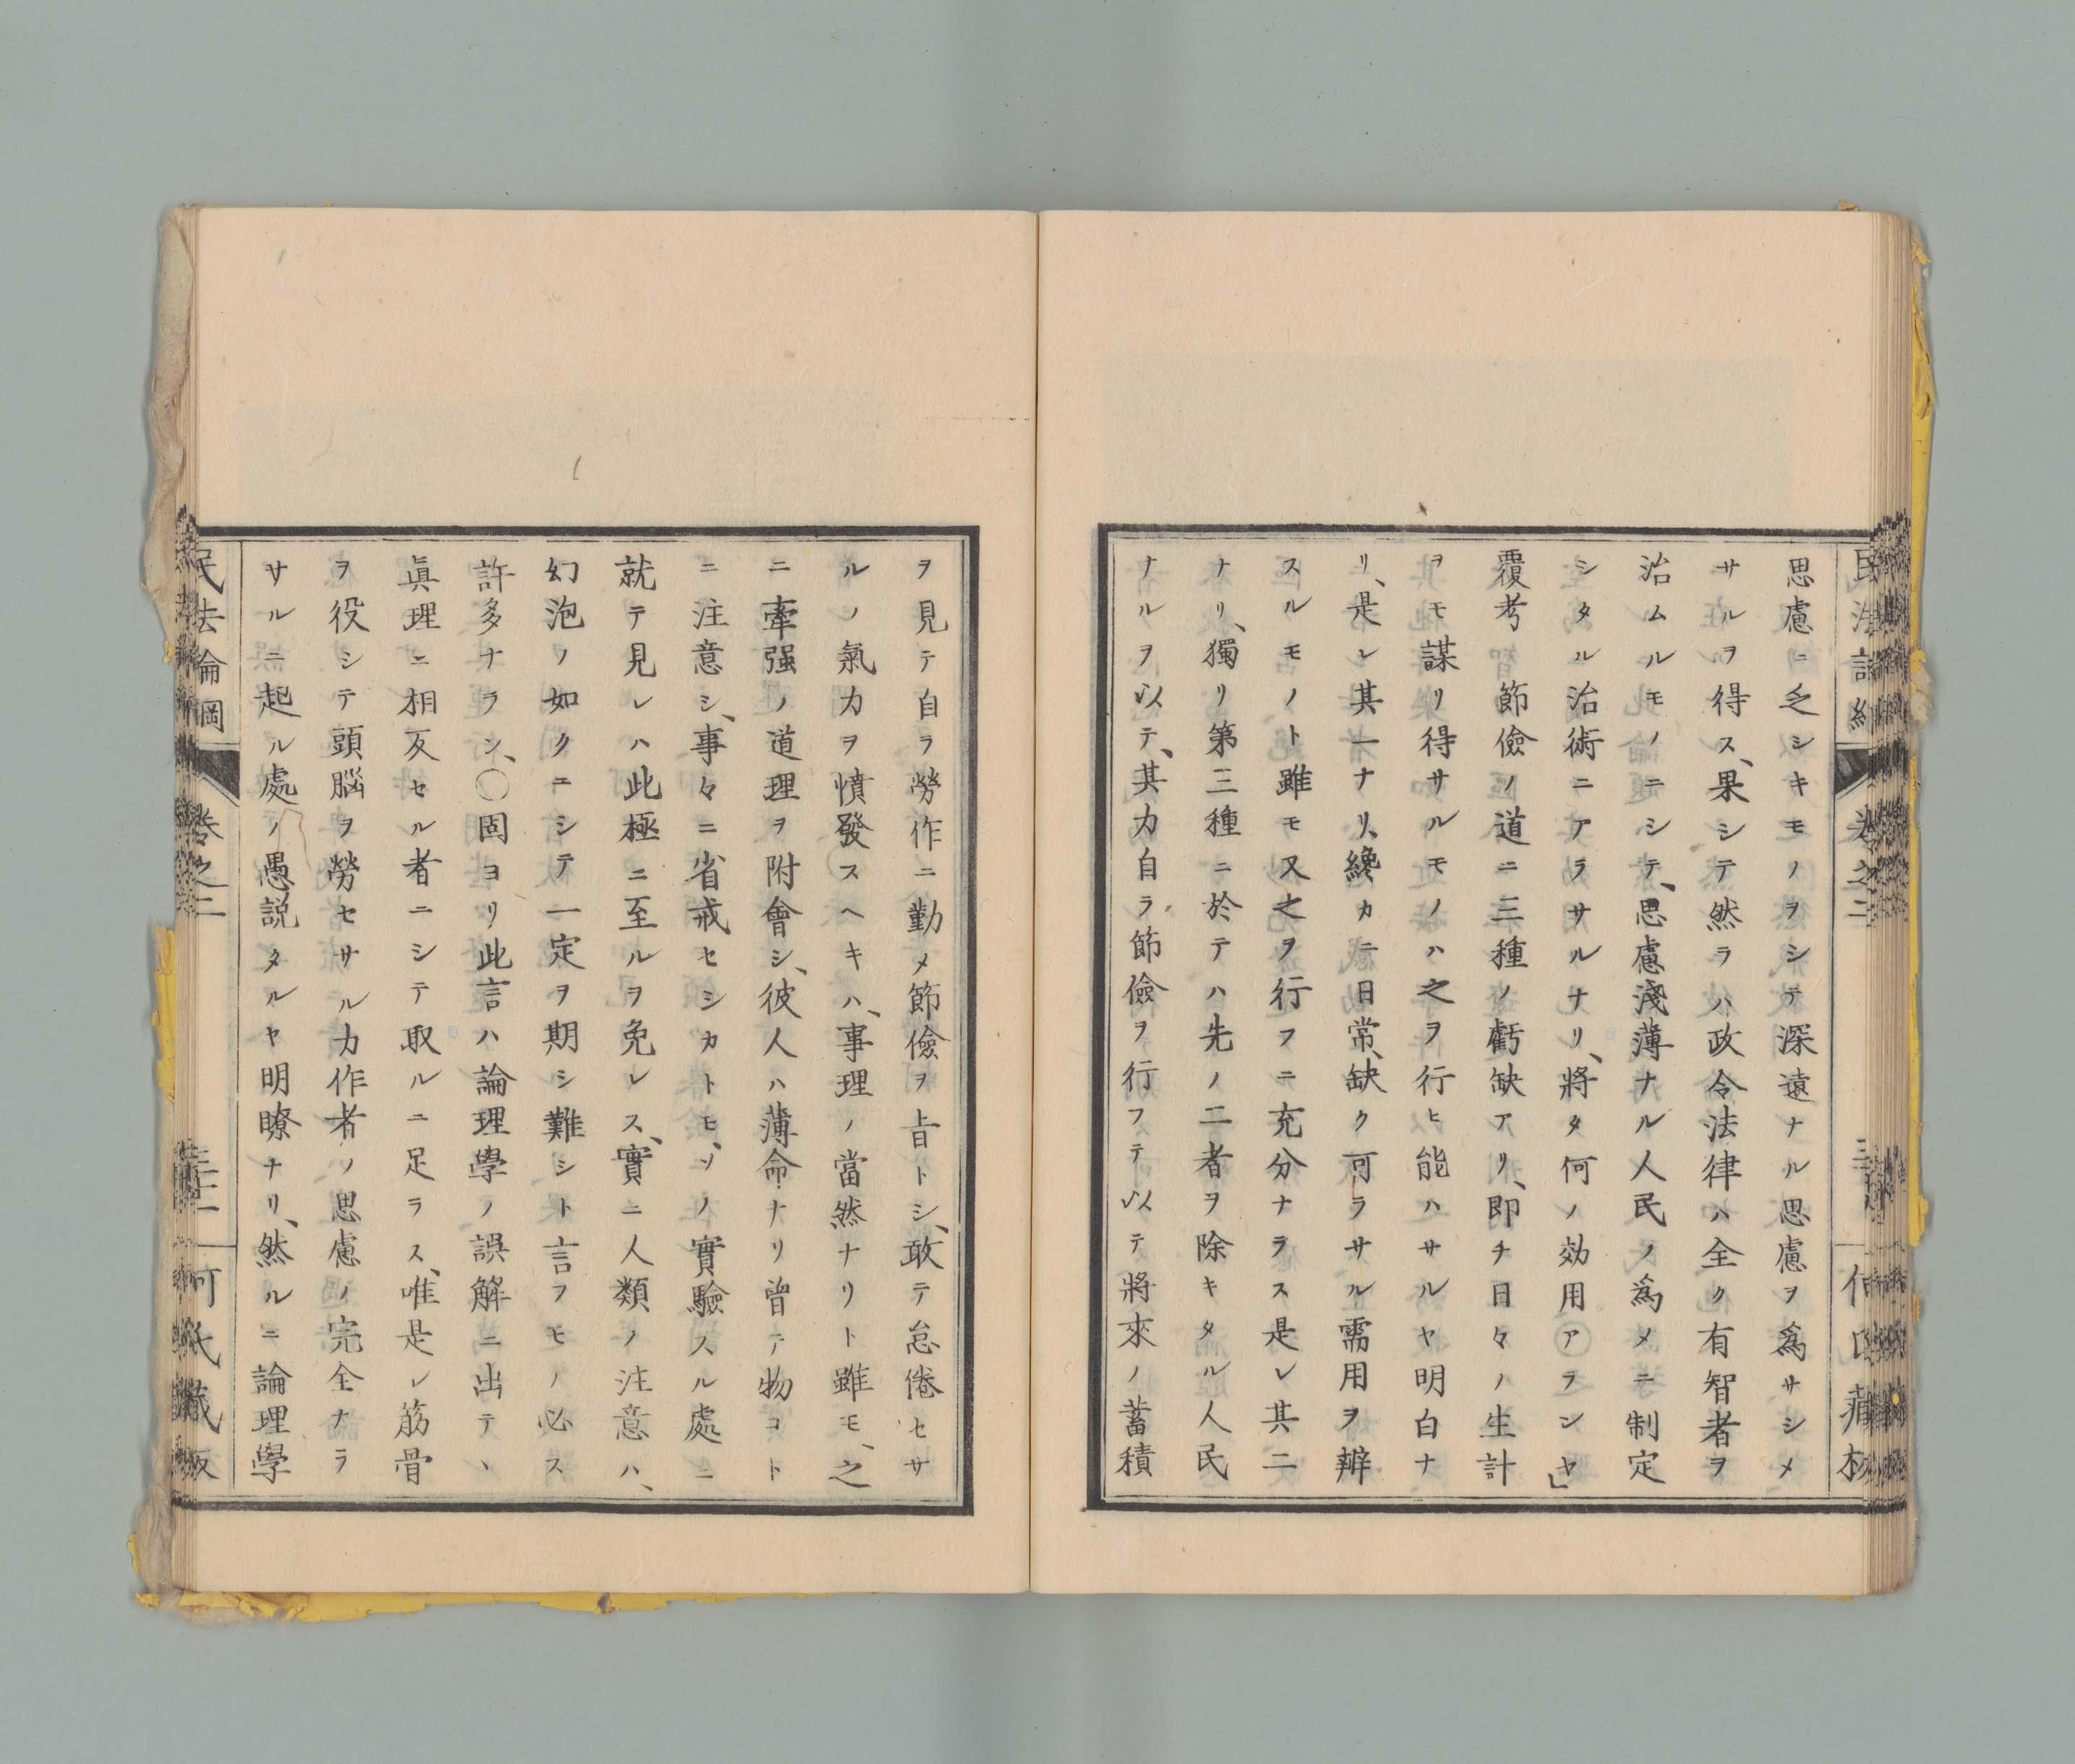 思慮ニ乏シキモノヲシテ深遠ナル思慮ヲ爲サシメ
サルヲ得ス、果シテ然ラハ政令法律ハ全ク有智者ヲ
治ムルモノニシテ、思慮淺薄ナル人民ノ爲メニ制定
シタル治術ニアラサルナリ、將タ何ノ効用アランヤ」
覆考 節儉ノ道ニ三種ノ虧缺アリ、即チ日々ノ生計
ヲモ謀リ得サルモノハ之ヲ行ヒ能ハサルヤ明白ナ
リ、是レ其一ナリ、纔カニ日常缺ク可ラサル需用ヲ辨
スルモノト雖モ又之ヲ行フニ充分ナラス是レ其二
ナリ、獨リ第三種ニ於テハ先ノ二者ヲ除キタル人民
ナルヲ以テ、其力自ラ節儉ヲ行フテ以テ將來ノ蓄積
ヲ見テ自ラ勞作ニ勤メ節儉ヲ旨トシ、敢テ怠倦セサ
ルノ氣力ヲ憤發スヘキハ、事理ノ當然ナリト雖モ、之
ニ牽强ノ道理ヲ附會シ、彼人ハ薄命ナリ曾テ物コト
ニ注意シ、事々ニ省戒セシカトモ、ソノ實驗スル處ニ
就テ見レハ此極ニ至ルヲ免レス、實ニ人類ノ注意ハ、
幻泡ノ如クニシテ一定ヲ期シ難シト言フモノ必ス
許多ナラン、〇固ヨリ此言ハ論理學ノ誤解ニ出テ、
眞理ニ相反セル者ニシテ取ルニ足ラス、唯是レ筋骨
ヲ役シテ頭腦ヲ勞セサル力作者ノ思慮ノ完全ナラ
サルニ起ル處ノ愚説タルヤ明瞭ナリ、然ルニ論理學
民法論綱 卷之二 何氏藏板